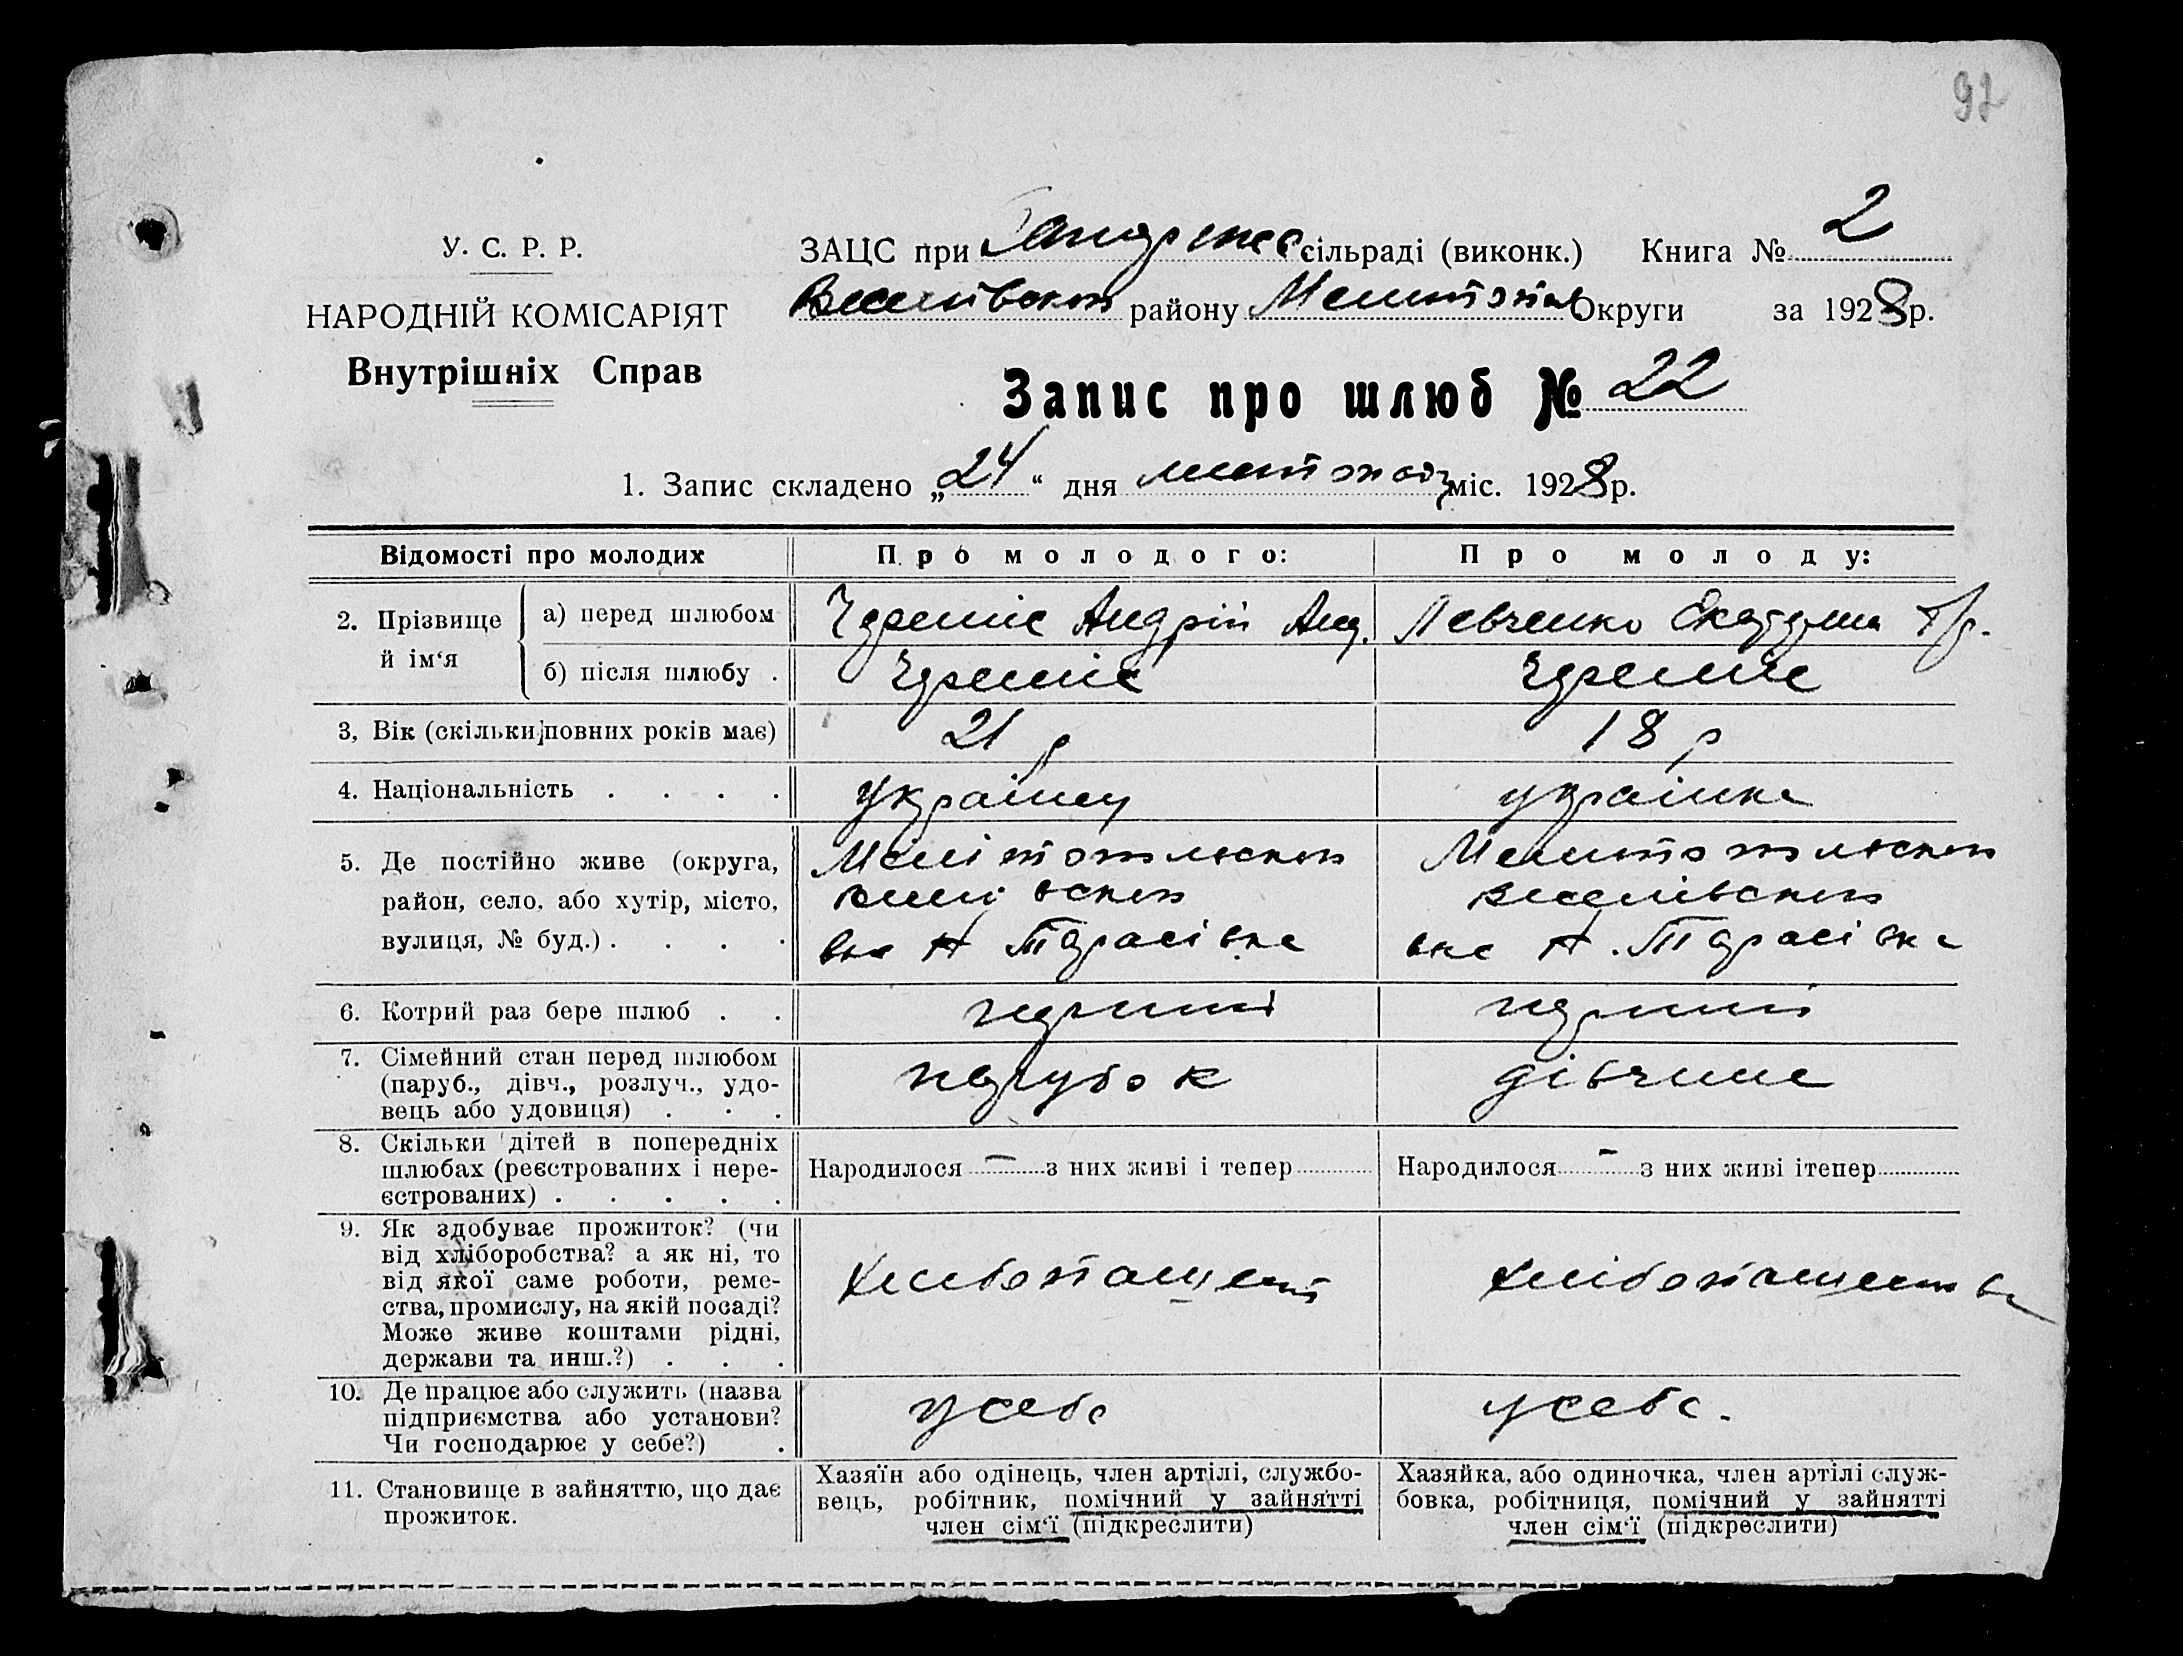 92
У. С. Р. Р.
НАРОДНІЙ КОМІСАРІЯТ
Внутрішніх Справ
ЗАЦС при сільраді (виконк.) Книга № 2
Веселівськ району Мелітоп Округи за 1928 р.
Запис про шлюб № 22
1. Запис складено „24“ дня листопаду міс. 1928 р.
Відомості про молодих Про молодого: Про молоду:
2. Прізвище й ім'я
а) перед шлюбом Андрій Анд. Левченко
б) після шлюбу .
3, Вік (скільки повних років має) 21 р 18 р
4. Національність . . . . українец українка
5. Де постійно живе (округа, Мелітопольськ Мелитопольськ
район, село, або хутір, місто, Веселівськ
вулиця, № буд.) . . . . Н Тарасівка Н. Тарасівка
6. Котрий раз бере шлюб . . перший перший
7. Сімейний стан перед шлюбом
(паруб., дівч., розлуч., удо- парубок дівчина
вець або удовиця) . . .
8. Скільки дітей в попередніх
шлюбах (реєстрованих і нере- Народилося — з них живі і тепер Народилося — з них живі ітепер
єстрованих) . . . . .
9. Як здобуває прожиток? (чи
від хліборобства? а як ні, то
від якої саме роботи, реме-
ства, промислу, на якій посаді?
Може живе коштами рідні,
держави та инш.?) . . .
10. Де працює або служить (назва
підприємства або установи? у себе у себе.
Чи господарює у себе?) .
11. Становище в зайняттю, що дає
прожиток.
Хазяїн або одінець, член артілі, службо-
вець, робітник, помічний у зайнятті
член сім'ї (підкреслити)
Хазяйка, або одиночка, член артілі служ-
бовка, робітниця, помічний у зайнятті
член сім'ї (підкреслити)